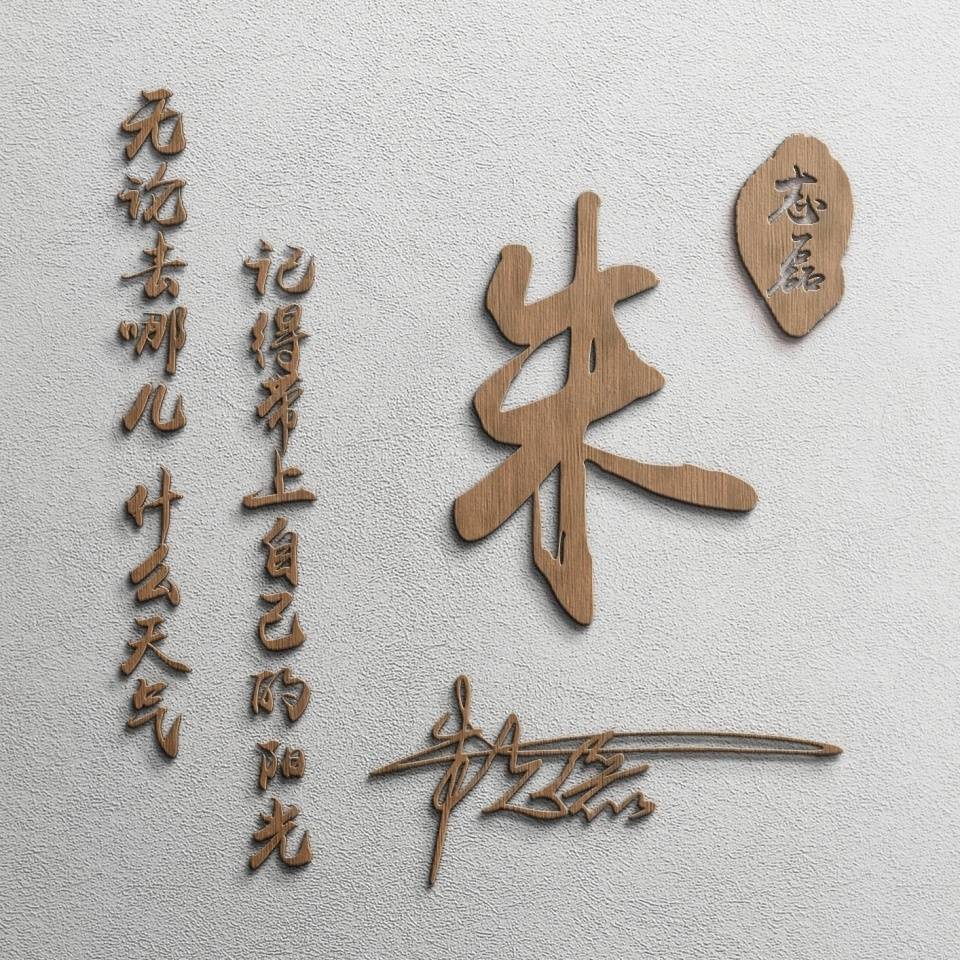 无论去哪儿 什么天气
记得带上自己的阳光
朱
志磊
朱志磊